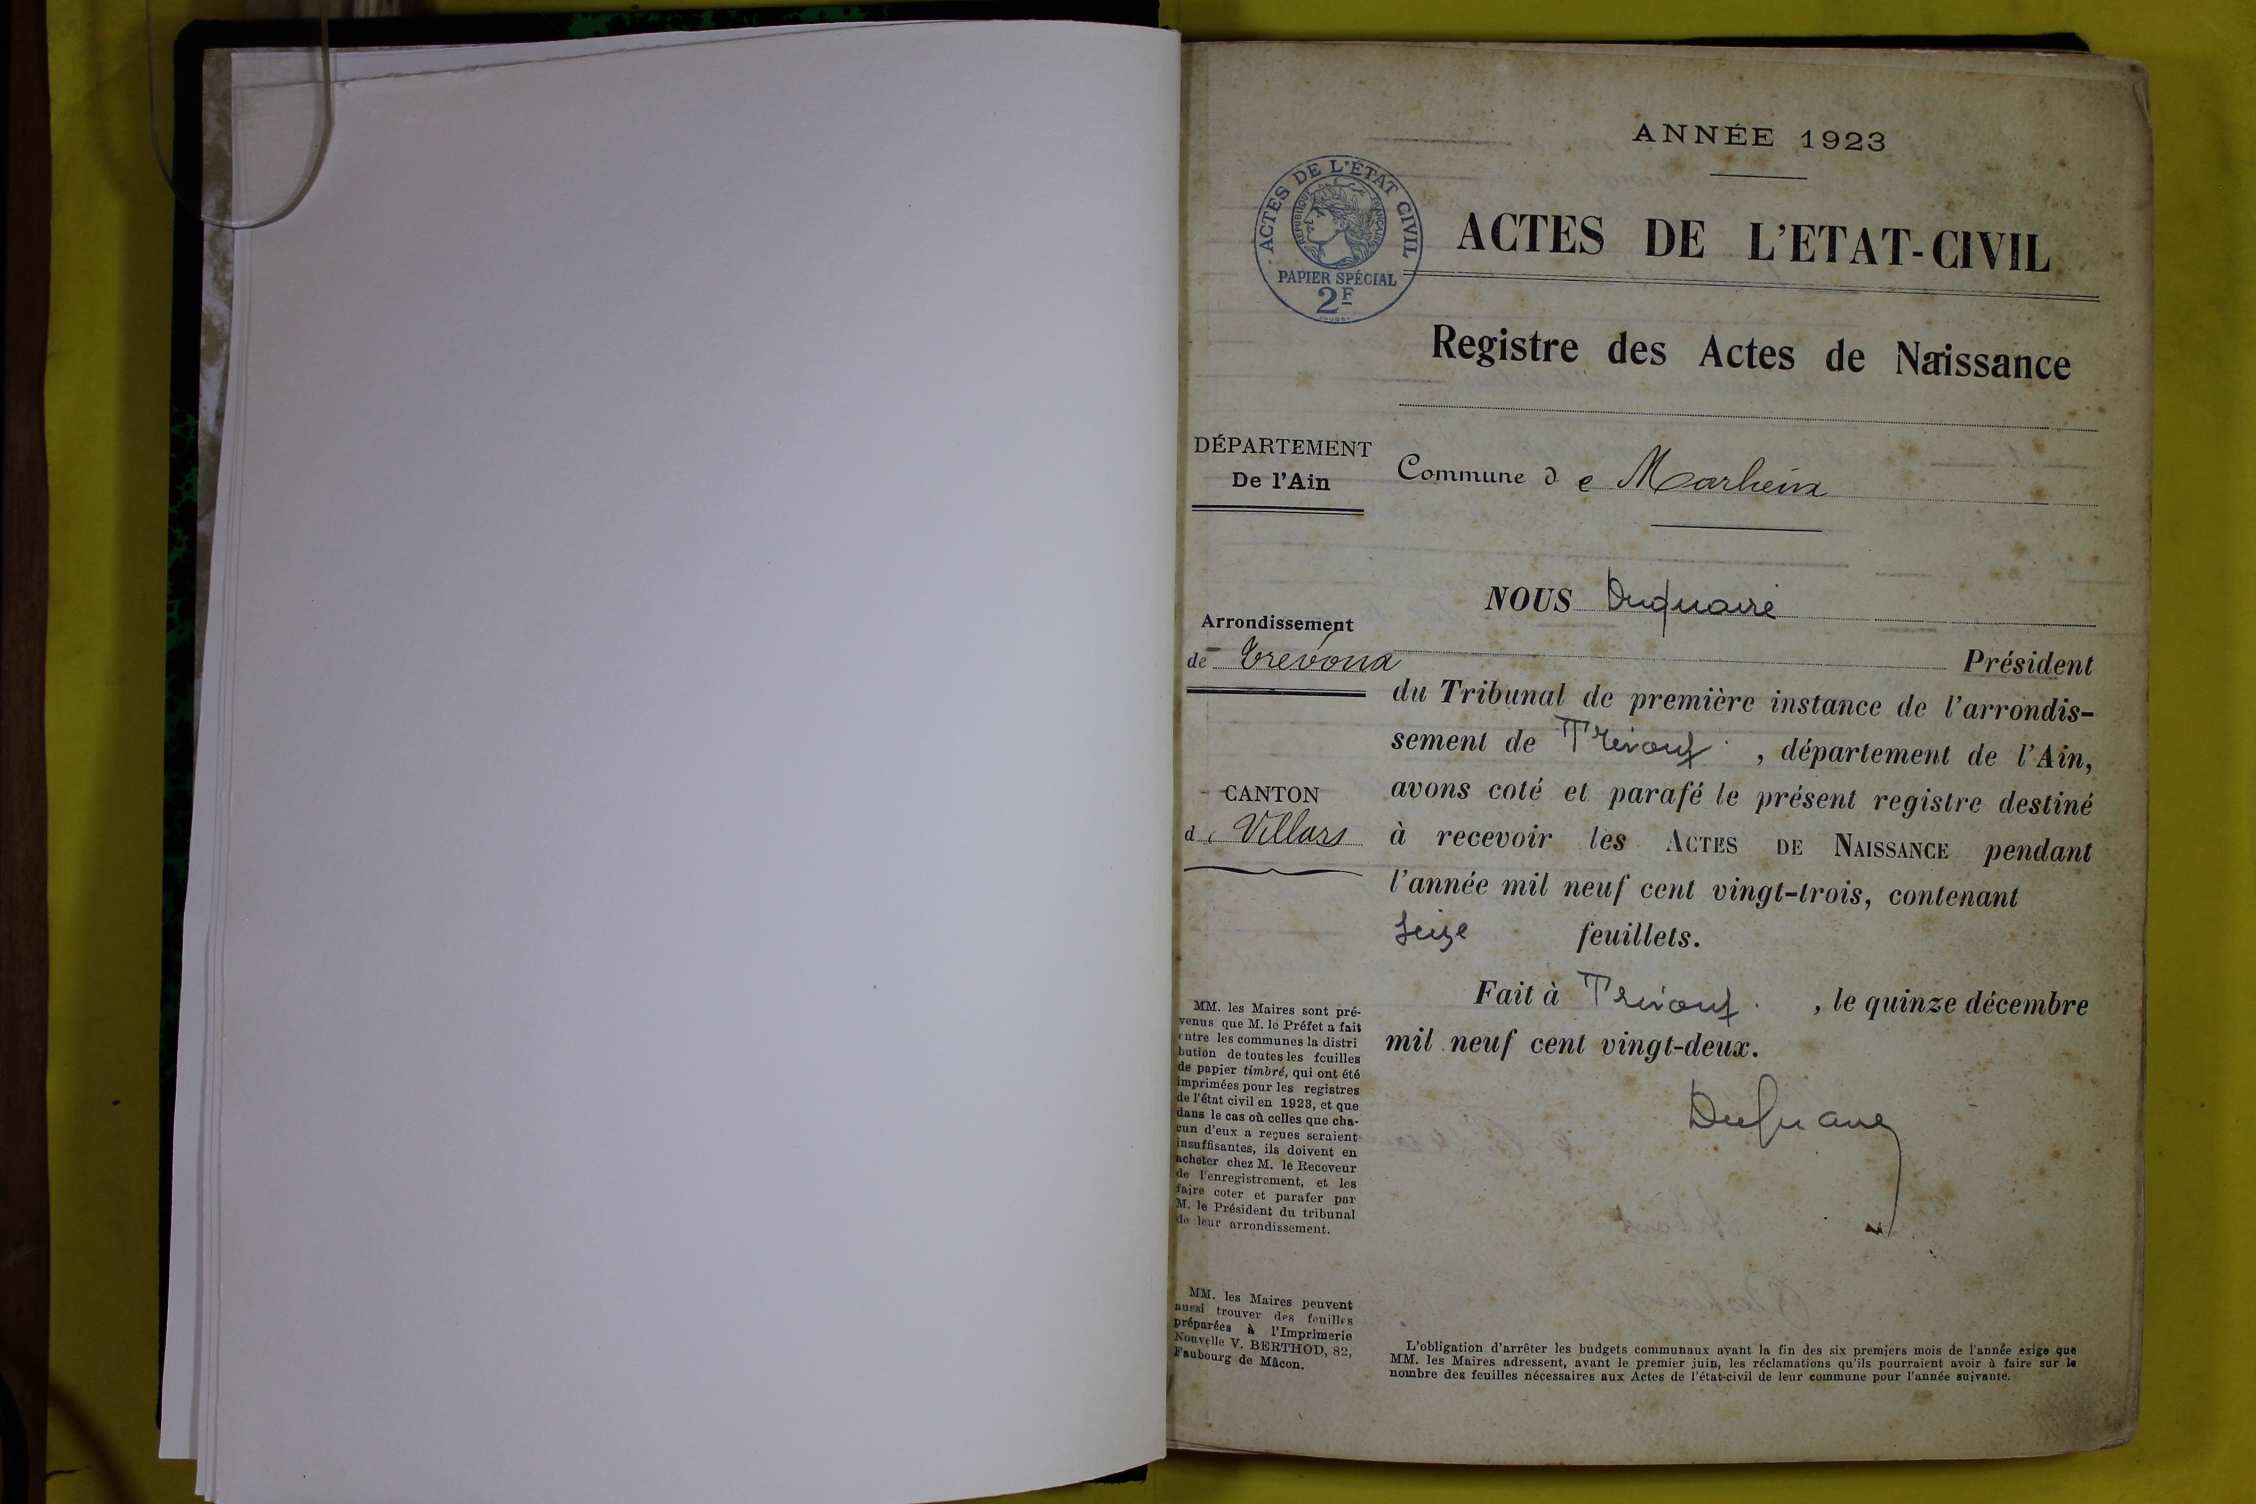 ANNÉE 1923
ACTES DE L'ÉTAT CIVIL
RÉPUBLIQUE FRANÇAISE
PAPIER SPÉCIAL
2F
ACTES DE L'ETAT-CIVIL
Registre des Actes de Naissance
DÉPARTEMENT
De l'Ain
Commune de Marlieux
Arrondissement
de Trévoux
CANTON
de Villars
NOUS Duquaire
Président
du Tribunal de première instance de l'arrondis-
sement de Trévoux, département de l'Ain,
avons coté et parafé le présent registre destiné
à recevoir les ACTES DE NAISSANCE pendant
l'année mil neuf cent vingt-trois, contenant
seize feuillets.
Fait à Trévoux, le quinze décembre
mil neuf cent vingt-deux.
Duquaire
MM. les Maires sont pré-
venus que M. le Préfet a fait
entre les communes la distri
bution de toutes les feuilles
de papier timbré, qui ont été
imprimées pour les registres
de l'état civil en 1923, et que
dans le cas où celles que cha-
cun d'eux a reçues seraient
insuffisantes, ils doivent en
acheter chez M. le Receveur
de l'enregistrement, et les
faire coter et parafer par
M. le Président du tribunal
de leur arrondissement.
MM. les Maires peuvent
aussi trouver des feuilles
préparées à l'Imprimerie
Nouvelle V. BERTHOD, 82,
Faubourg de Mâcon.
L'obligation d'arrêter les budgets communaux avant la fin des six premiers mois de l'année exige que
MM. les Maires adressent, avant le premier juin, les réclamations qu'ils pourraient avoir à faire sur le
nombre des feuilles nécessaires aux Actes de l'état-civil de leur commune pour l'année suivante.